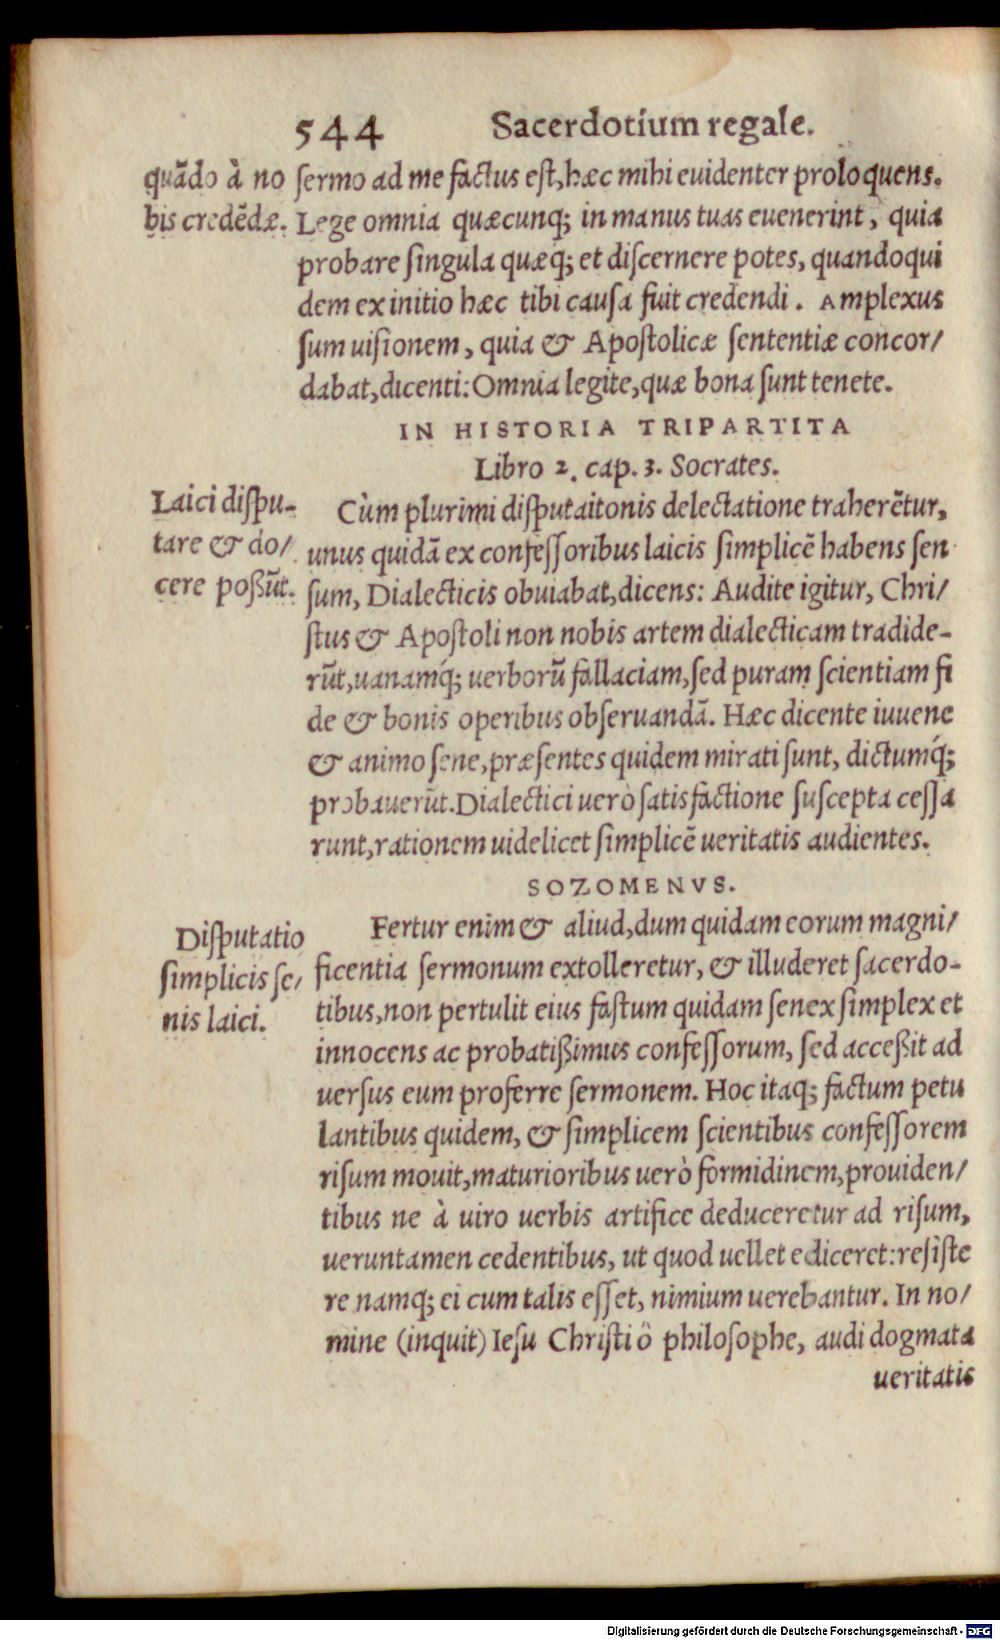 544 Sacerdotium regale.
quãdo à no
bis credẽdæ.
sermo ad me factus est, hæc mihi euidenter proloquens.
Lege omnia quæcunq; in manus tuas euenerint, quia
probare singula quæq; et discernere potes, quandoqui
dem ex initio hæc tibi causa fuit credendi. Amplexus
sum uisionem, quia & Apostolicæ sententiæ concor/
dabat, dicenti: Omnia legite, quæ bona sunt tenete.
IN HISTORIA TRIPARTITA
Libro 2. cap. 3. Socrates.
Laici dispu-
tare & do/
cere possũt.
Cùm plurimi disputaitonis delectatione traherẽtur,
unus quidã ex confessoribus laicis simplicẽ habens sen
sum, Dialecticis obuiabat, dicens: Audite igitur, Chri/
stus & Apostoli non nobis artem dialecticam tradide-
rũt, uanamq́; uerborũ fallaciam, sed puram scientiam fi
de & bonis operibus obseruandã. Hæc dicente iuuene
& animo sene, præsentes quidem mirati sunt, dictumq́;
probauerũt. Dialectici uerò satisfactione suscepta cessa
runt, rationem uidelicet simplicẽ ueritatis audientes.
SOZOMENVS.
Disputatio
simplicis se/
nis laici.
Fertur enim & aliud, dum quidam eorum magni/
ficentia sermonum extolleretur, & illuderet sacerdo-
tibus, non pertulit eius fastum quidam senex simplex et
innocens ac probatißimus confessorum, sed acceßit ad
uersus eum proferre sermonem. Hoc itaq; factum petu
lantibus quidem, & simplicem scientibus confessorem
risum mouit, maturioribus uerò formidinem, prouiden/
tibus ne à uiro uerbis artifice deduceretur ad risum,
ueruntamen cedentibus, ut quod uellet ediceret: resiste
re namq; ei cum talis esset, nimium uerebantur. In no/
mine (inquit) Iesu Christi ô philosophe, audi dogmata
ueritatis
Digitalisierung gefördert durch die Deutsche Forschungsgemeinschaft - DFG